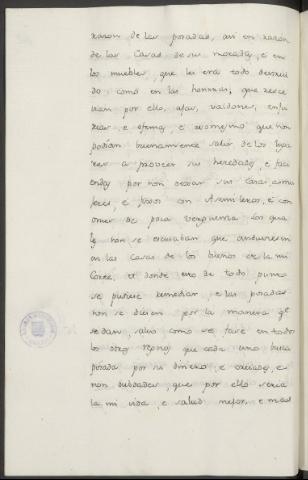 razon de las posadas, asi en razon
de las Casas de sus moradas, e en
los muebles, que les era todo destrui
do, como en las honrras, que rece
vian por ello, ajar, valdones, enju
rias e e asomesmo que non
podian buenamente salir de los luga
res a proveer sus heredades, e faci
endas por non dexar sus Casas, e mu
jeres, e fijos con Azemileros, e con
omes de poca verguenza los que
le non se escusaban que anduviesen
en las Casas de los buenos de la mi
Corte, et donde esto de todo punto
se pudiese remediar, e las posadas
non se diesen por la manera qe
se dan, salvo como se face en todos
los otros reynos que cada uno busca
posada por su dinero, e escusado, e
non dubdades, que por ello seria
la mi vida, e salud mejor, e mas